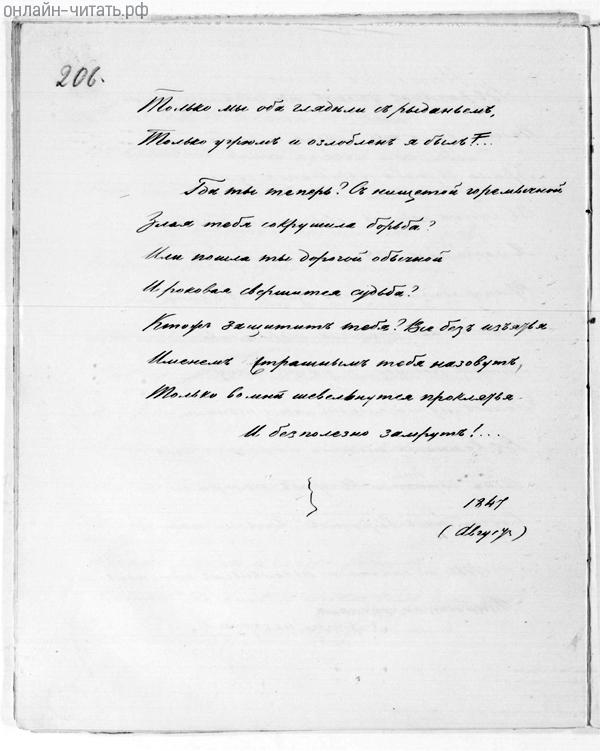 онлайн-читать.рф
206.
Только мы оба глядѣли съ рыданьемъ,
Только угрюмъ и озлобленъ я былъ...
Гдѣ ты теперь? Съ нищетой горемычной
Злая тебя сокрушила борьба?
Или пошла ты дорогой обычной
И роковая свершится судьба?
Ктожъ защититъ тебя? Всѣ безъ изъятья
Именемъ страшнымъ тебя назовутъ,
Только во мнѣ шевельнутся проклятья
И безполезно замрутъ!...
1847
(Августъ)